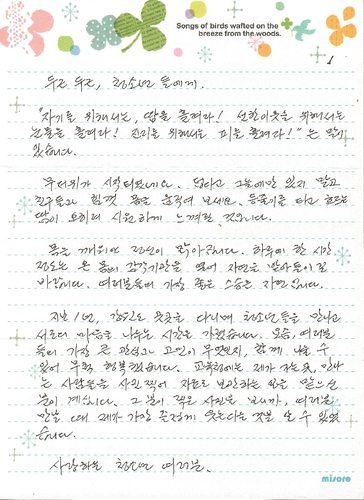 Songs of birds wafted on the
breeze from the woods.
1
두근 두근, 청소년 들에게.
"자기를 위해서는, 땀을 흘려라! 선한이웃을 위해서는
눈물을 흘려라! 진리를 위해서는 피를 흘려라!" 는 말이
있습니다.
무더위가 시작되었네요. 덥다고 그늘에만 있지 말고
친구들과 힘껏 몸을 움직여 보세요. 등줄기를 타고 흐르는
땀이 오히려 시원하게 느껴질 것입니다.
몸을 깨워야 정신이 맑아집니다. 하루에 한 시간
정도는 온 몸의 감각기관을 열어 자연을 받아들이길
바랍니다. 여러분들의 가장 좋은 스승은 자연입니다.
지난 1년, 강원도 곳곳을 다니며 청소년들을 만나고
서로의 마음을 나누는 시간을 가졌습니다. 요즘, 여러분
들의 가장 큰 관심과 고민이 무엇인지, 함께 나눌 수
있어 무척 행복했습니다. 교육청에는 제가 가는 곳, 만나
는 사람들을 사진 찍어 자료로 보관하는 일을 맡으신
분이 계십니다. 그 분이 찍은 사진을 보니까, 여러분
만날 때 제가 가장 즐겁게 웃는다는 것을 알 수 있었
습니다.
사랑하는 청소년 여러분.
misore